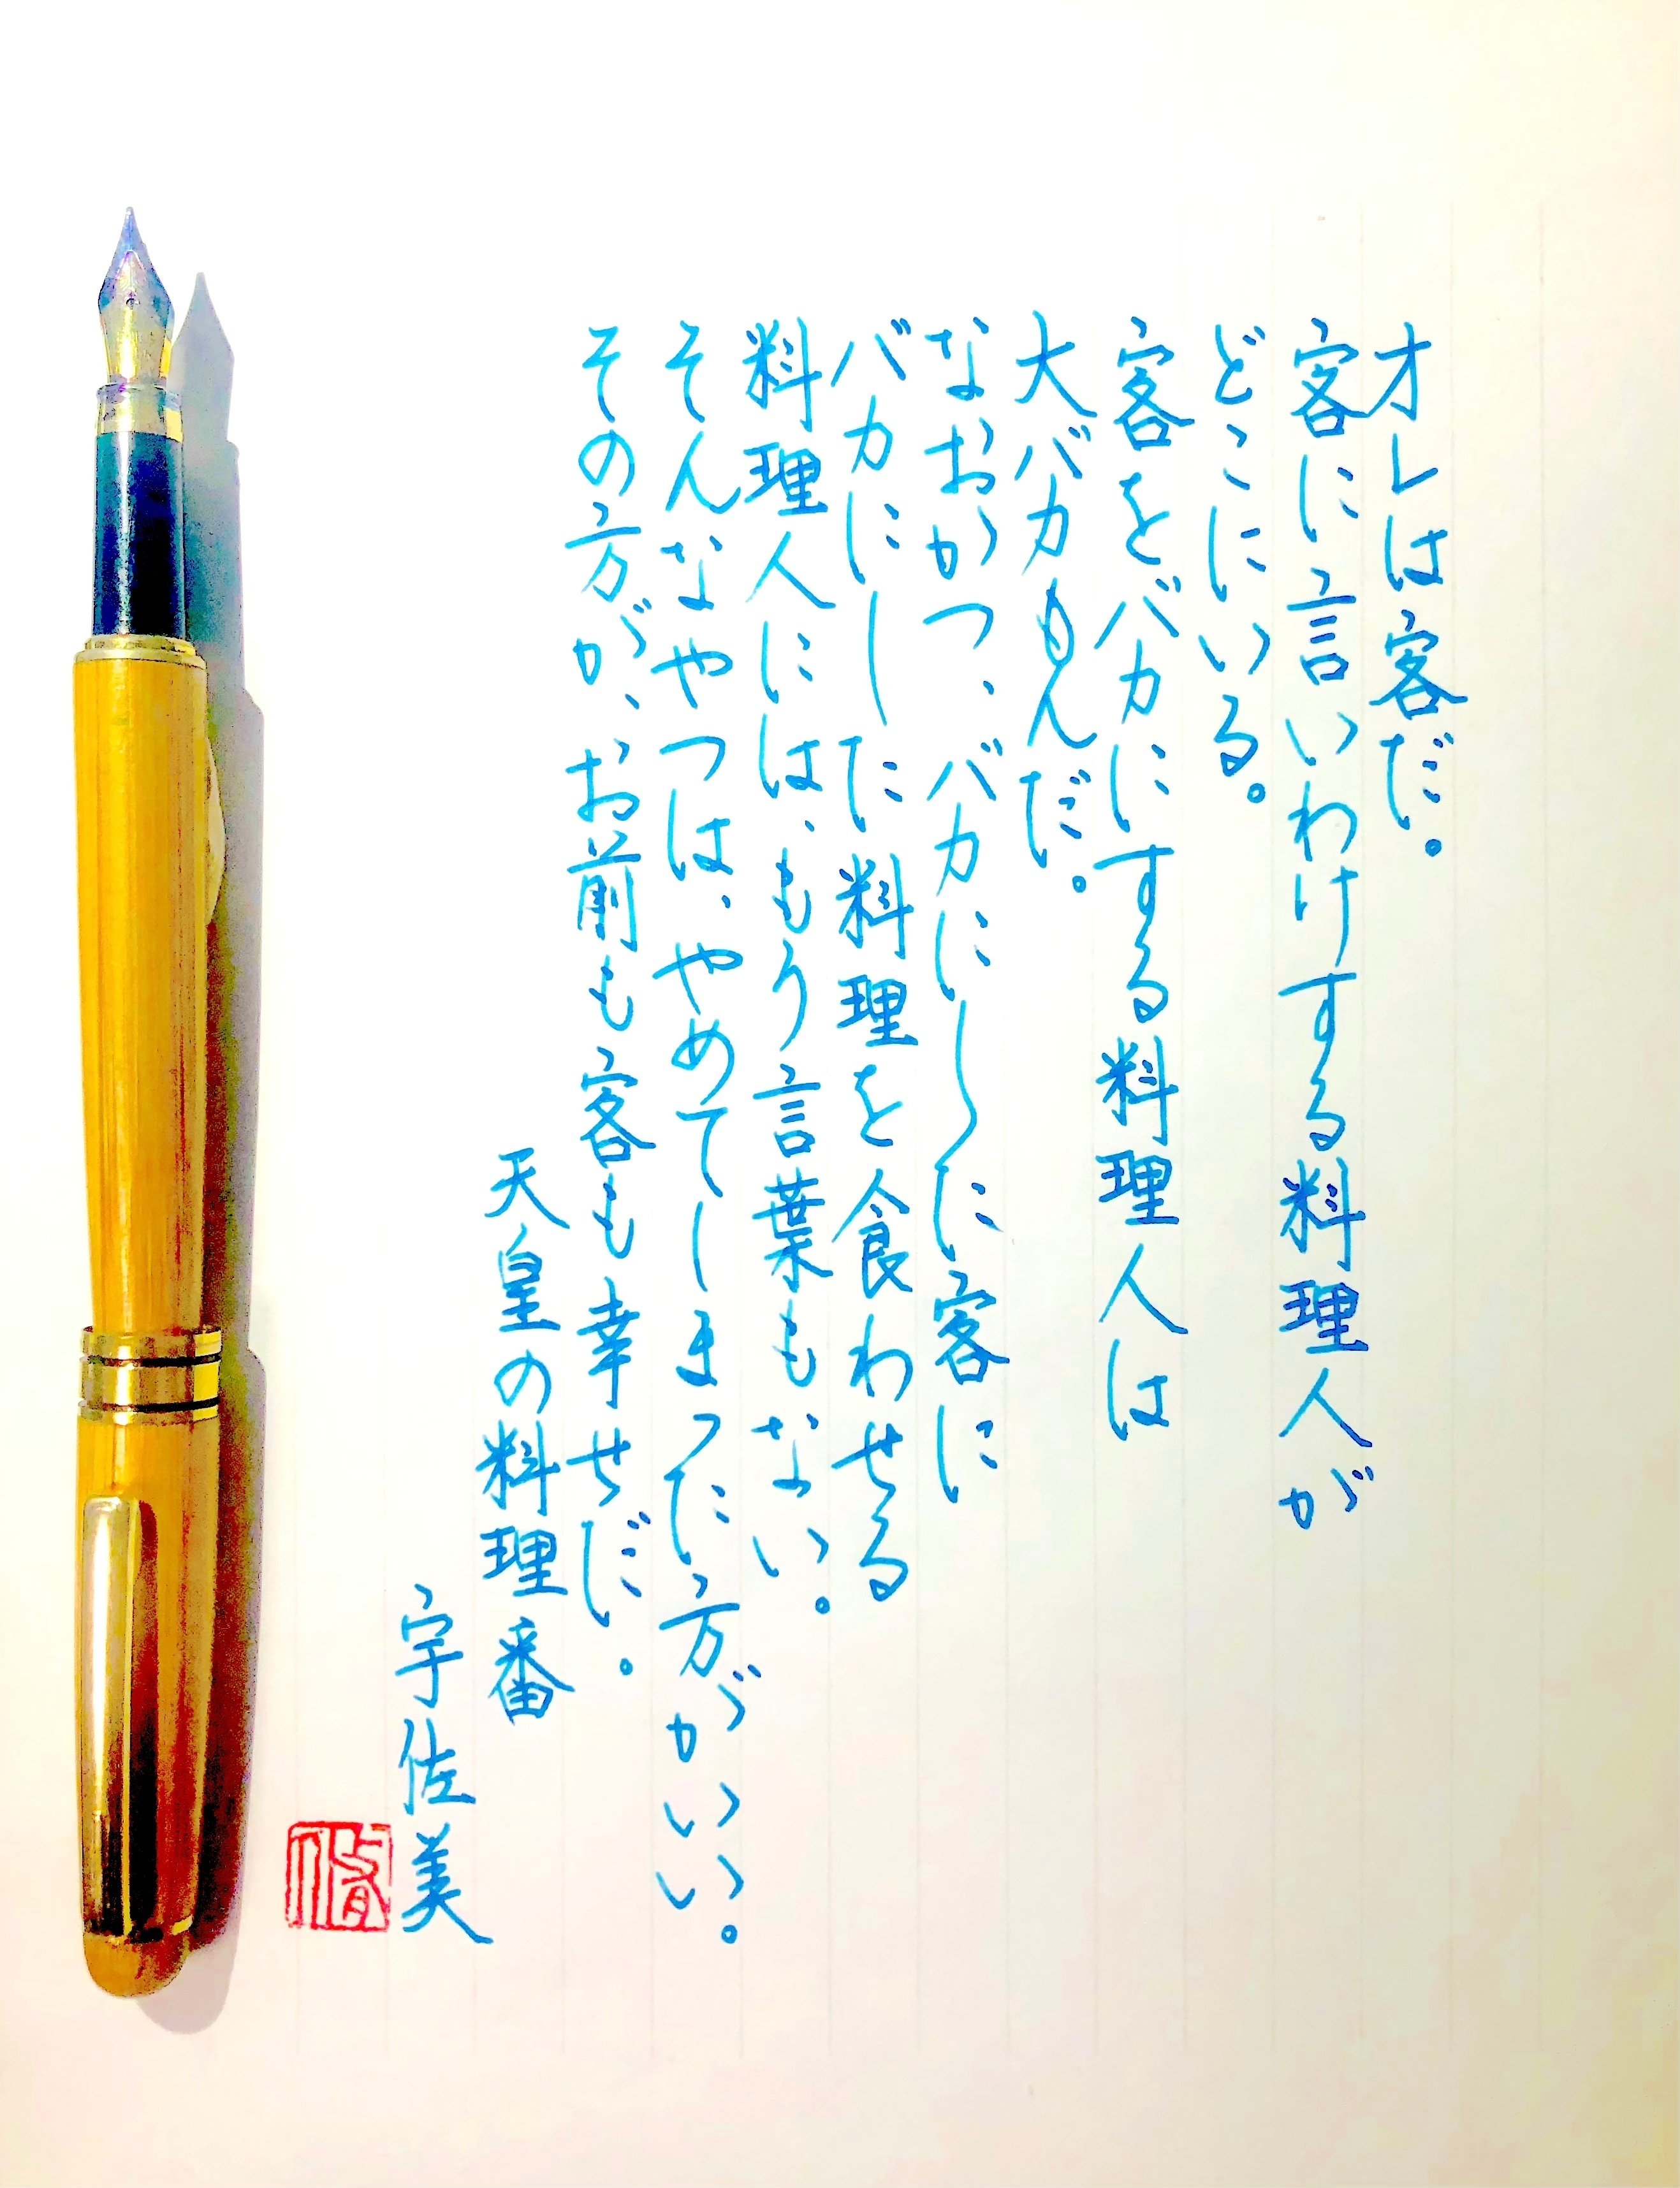 オレは客だ。
客に言いわけする料理人が
どこにいる。
客をバカにする料理人は
大バカもんだ。
なおかつ、バカにした客に
バカにした料理を食わせる
料理人には、もう言葉もない。
そんなやつは、やめてしまった方がいい。
その方が、お前も客も幸せだ。
天皇の料理番
宇佐美